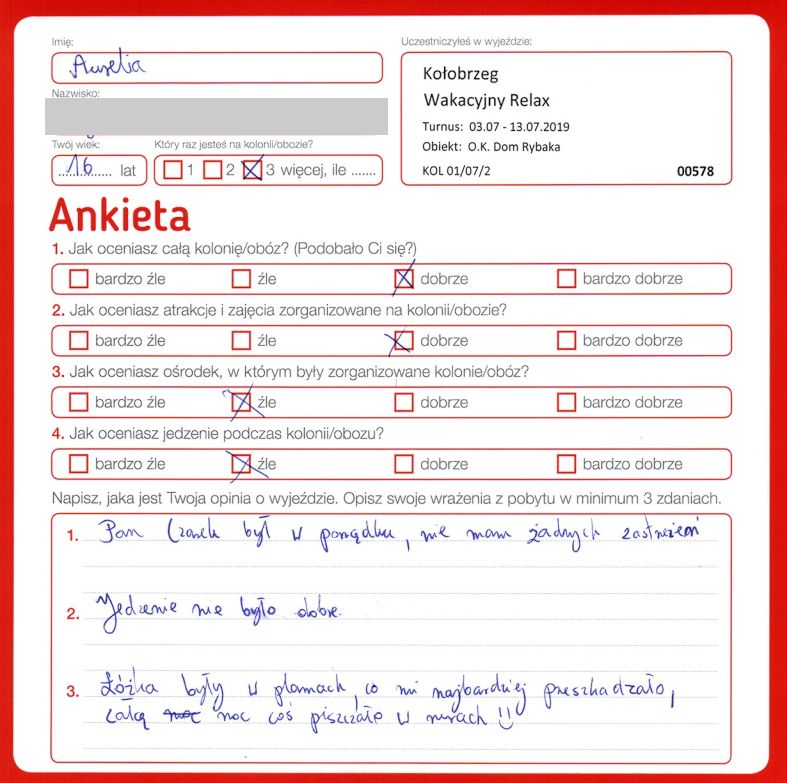 Imię:
Aurelia
Nazwisko:
Twój wiek:
16 lat
Który raz jesteś na kolonii/obozie?
1 2 3 więcej, ile .......
Uczestniczyłeś w wyjeździe:
Kołobrzeg
Wakacyjny Relax
Turnus: 03.07 - 13.07.2019
Obiekt: O.K. Dom Rybaka
KOL 01/07/2 00578
Ankieta
1. Jak oceniasz całą kolonię/obóz? (Podobało Ci się?)
bardzo źle źle dobrze bardzo dobrze
2. Jak oceniasz atrakcje i zajęcia zorganizowane na kolonii/obozie?
bardzo źle źle dobrze bardzo dobrze
3. Jak oceniasz ośrodek, w którym były zorganizowane kolonie/obóz?
bardzo źle źle dobrze bardzo dobrze
4. Jak oceniasz jedzenie podczas kolonii/obozu?
bardzo źle źle dobrze bardzo dobrze
Napisz, jaka jest Twoja opinia o wyjeździe. Opisz swoje wrażenia z pobytu w minimum 3 zdaniach.
1. Pan Czarek był w porządku, nie mam żadnych zastrzeżeń
2. Jedzenie nie było dobre.
3. Łóżka były w plamach, co mi najbardziej przeszkadzało,
całą noc noc coś piszczało w rurach